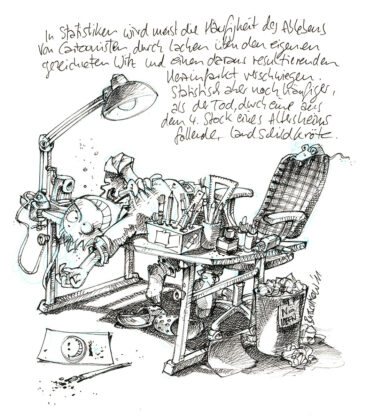 In Statistiken wird meist die Häufigkeit des Ablebens
von Cartoonisten durch Lachen über den eigenen
gezeichneten Witz und einen daraus resultierenden
Herzinfarkt verschwiegen.
Statistisch aber noch häufiger,
als der Tod, durch eine aus
dem 4. Stock eines Altersheims
fallender Landschildkröte.